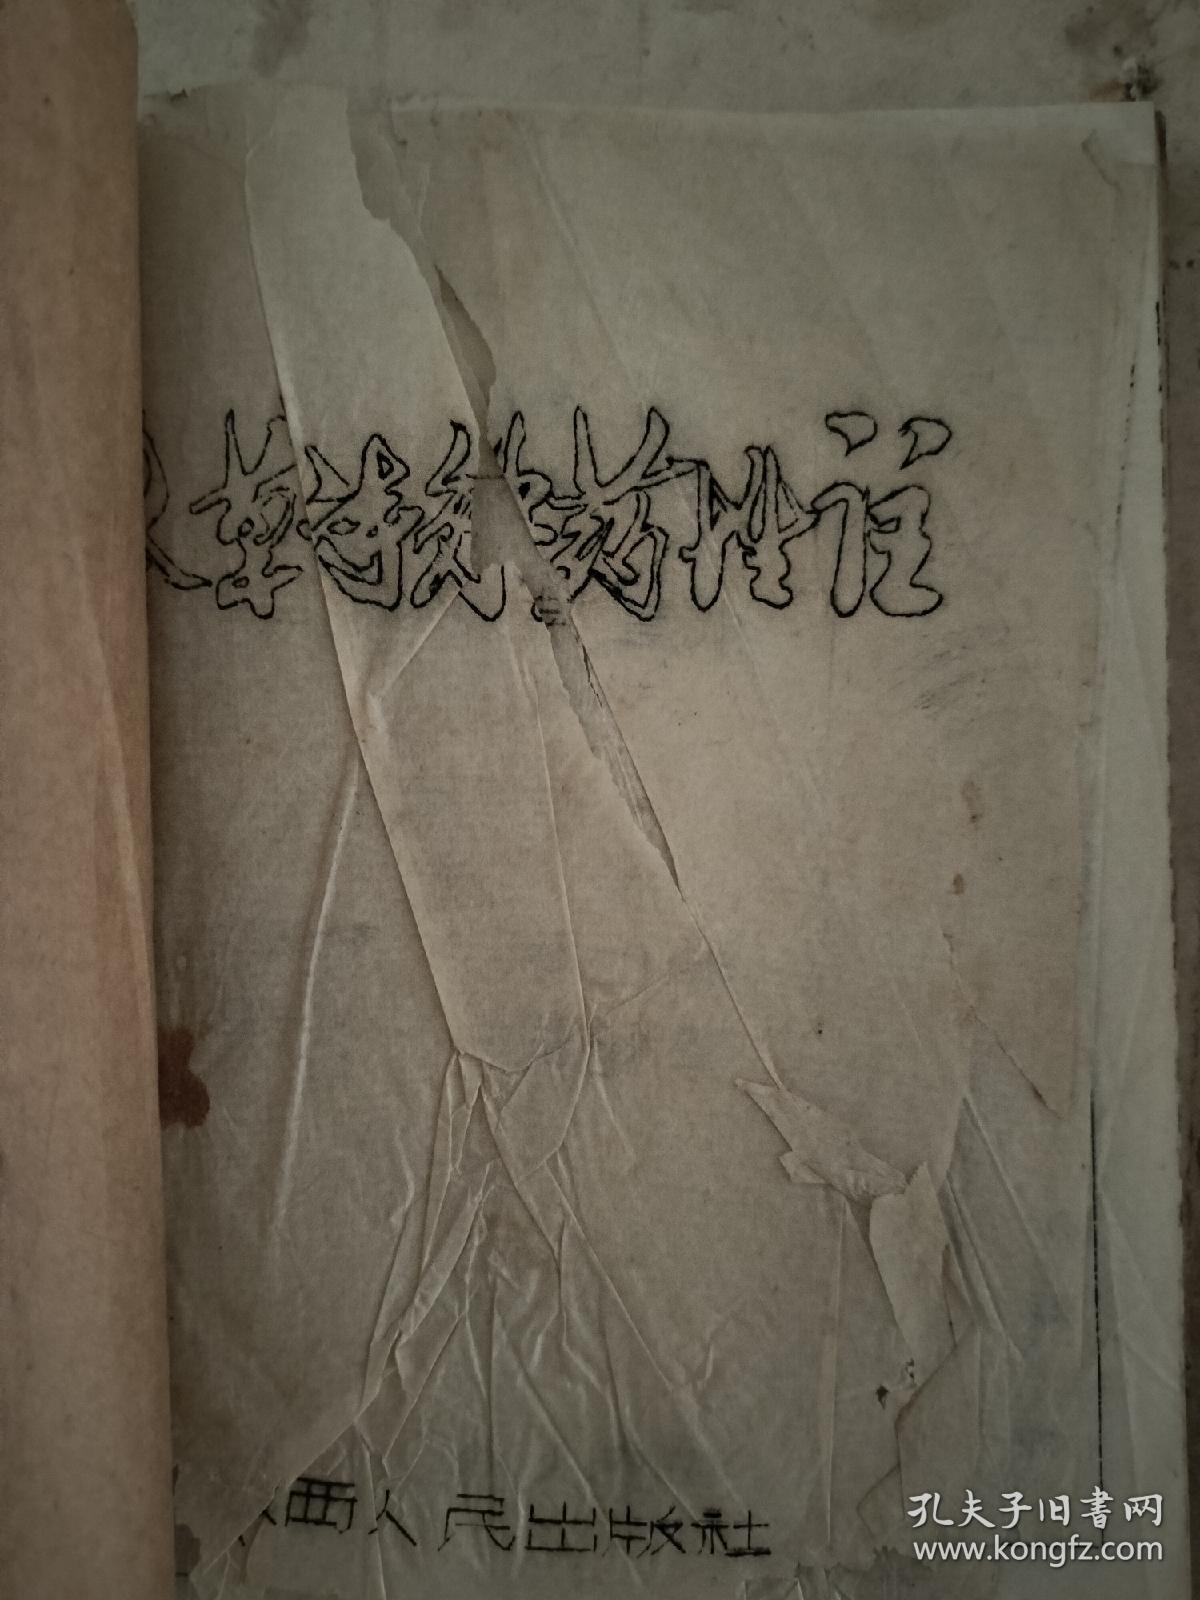 草诗解药性注
西人民出版社
孔夫子旧書网
www.kongfz.com